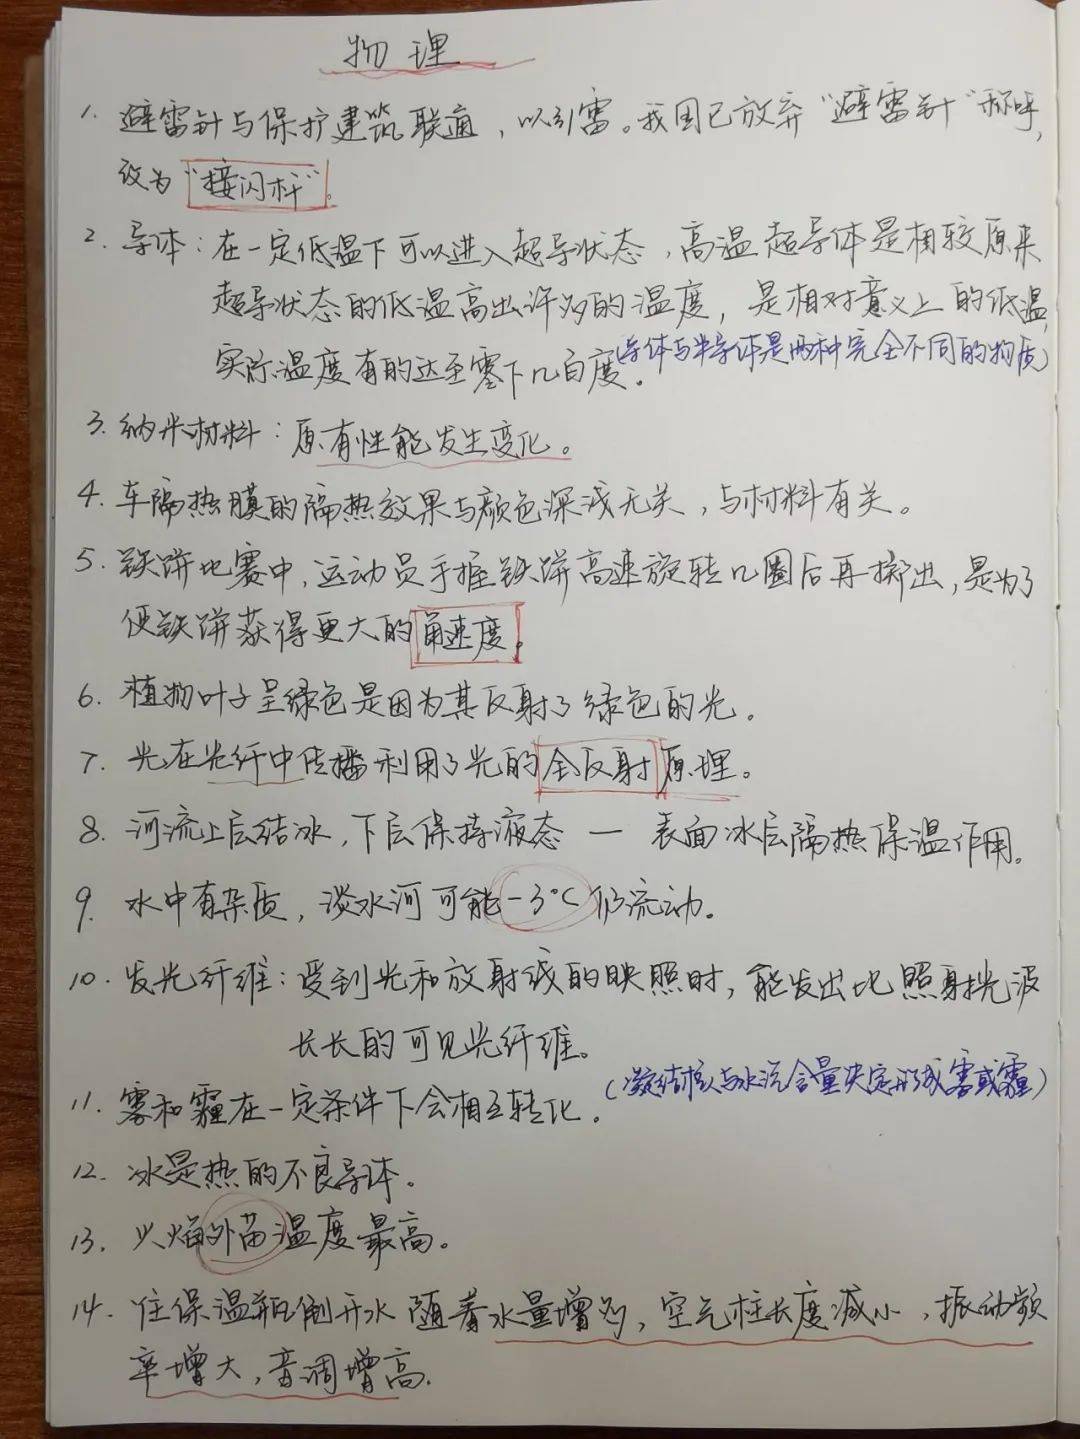 物理
1. 避雷针与保护建筑联通，以引雷。我国已放弃“避雷针”称呼，
改为“接闪杆”。
2. 导体：在一定低温下可以进入超导状态，高温超导体是相较原来
超导状态的低温高出许多的温度，是相对意义上的低温，
实际温度有的达至零下几百度。(导体与半导体是两种完全不同的物质)
3. 纳米材料：原有性能发生变化。
4. 车隔热膜的隔热效果与颜色深浅无关，与材料有关。
5. 铁饼比赛中，运动员手握铁饼高速旋转几圈后再掷出，是为了
使铁饼获得更大的角速度。
6. 植物叶子呈绿色是因为其反射了绿色的光。
7. 光在光纤中传播利用了光的全反射原理。
8. 河流上层结冰，下层保持液态 — 表面冰层隔热保温作用。
9. 水中有杂质，淡水河可能-3℃仍流动。
10. 发光纤维：受到光和放射线的映照时，能发出比照射光波
长长的可见光纤维。
11. 雾和霾在一定条件下会相互转化。(凝结核与水汽含量决定形成雾或霾)
12. 冰是热的不良导体。
13. 火焰外苗温度最高。
14. 往保温瓶倒开水随着水量增多，空气柱长度减小，振动频
率增大，音调增高.